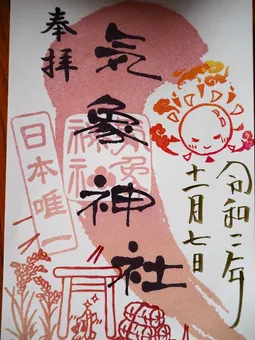 奉拝
気象神社
日本唯一
令和二年
十一月七日